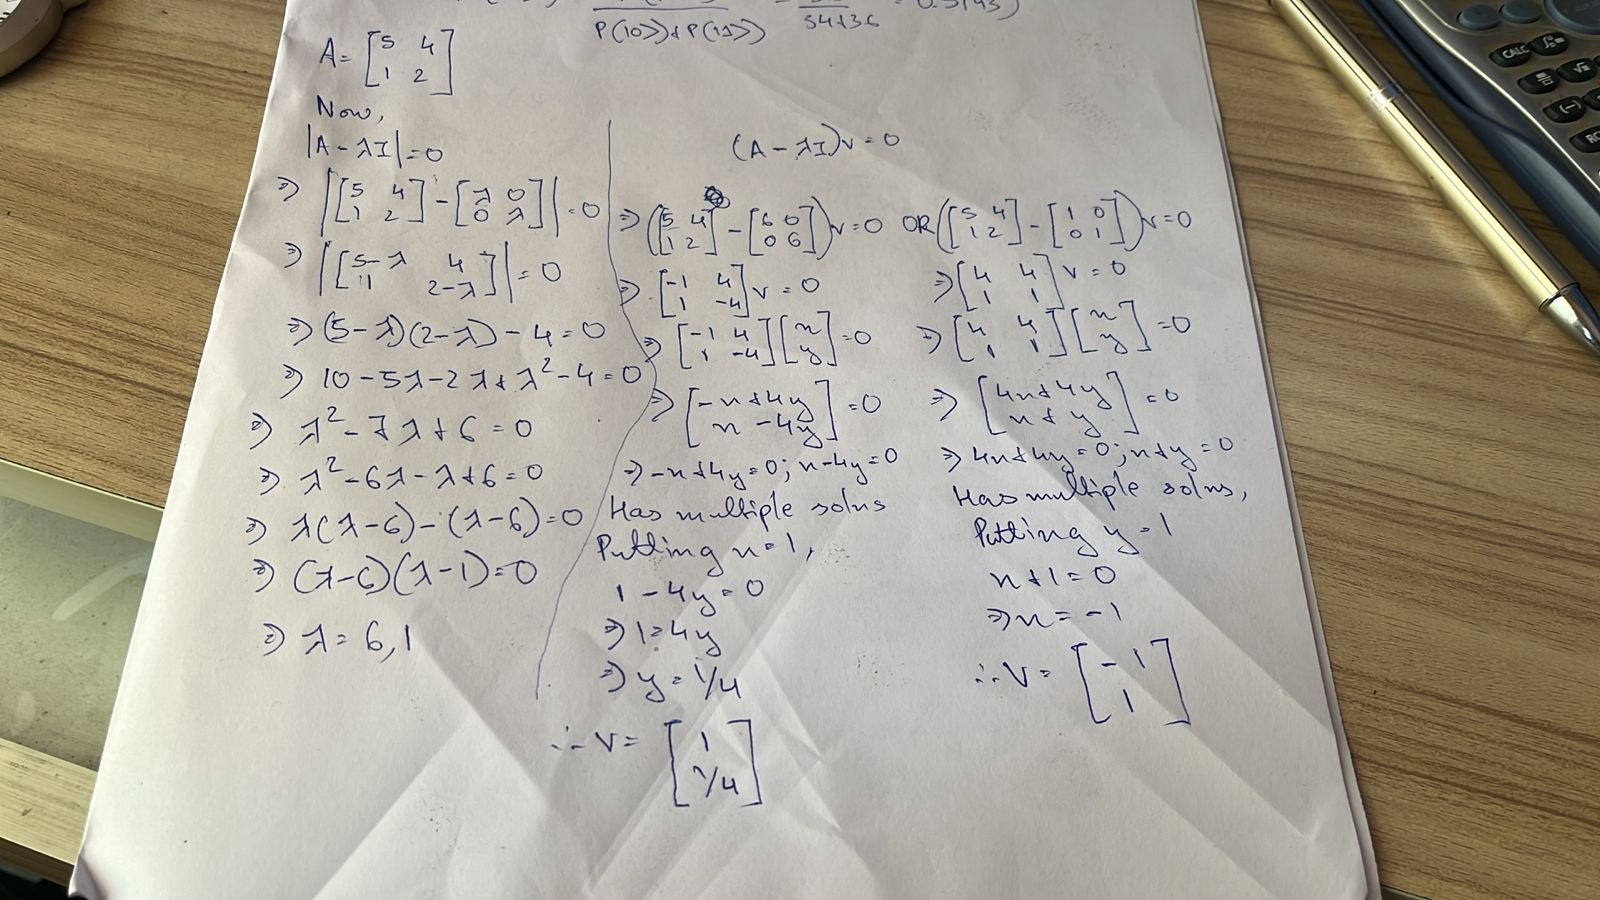 P(10>>)+P(11>>) 54+36 = 0.5(45)
A = [5 4
1 2]
Now,
|A - λI| = 0
⇒ |[5 4
1 2] - [λ 0
0 λ]| = 0
⇒ |[5-λ 4
1 2-λ]| = 0
⇒ (5-λ)(2-λ) - 4 = 0
⇒ 10 - 5λ - 2λ + λ² - 4 = 0
⇒ λ² - 7λ + 6 = 0
⇒ λ² - 6λ - λ + 6 = 0
⇒ λ(λ-6) - (λ-6) = 0
⇒ (λ-6)(λ-1) = 0
⇒ λ = 6, 1
(A - λI)v = 0
⇒ ([5 4
1 2] - [6 0
0 6])v = 0 OR ([5 4
1 2] - [1 0
0 1])v = 0
⇒ [-1 4
1 -4] v = 0
⇒ [-1 4
1 -4] [x
y] = 0
⇒ [-x + 4y
x - 4y] = 0
⇒ -x + 4y = 0; x - 4y = 0
Has multiple solns
Putting x = 1,
1 - 4y = 0
⇒ 1 = 4y
⇒ y = 1/4
∴ v = [1
1/4]
⇒ [4 4
1 1] v = 0
⇒ [4 4
1 1] [x
y] = 0
⇒ [4x + 4y
x + y] = 0
⇒ 4x + 4y = 0; x + y = 0
Has multiple solns,
Putting y = 1
x + 1 = 0
⇒ x = -1
∴ v = [-1
1]
CALC
(-)